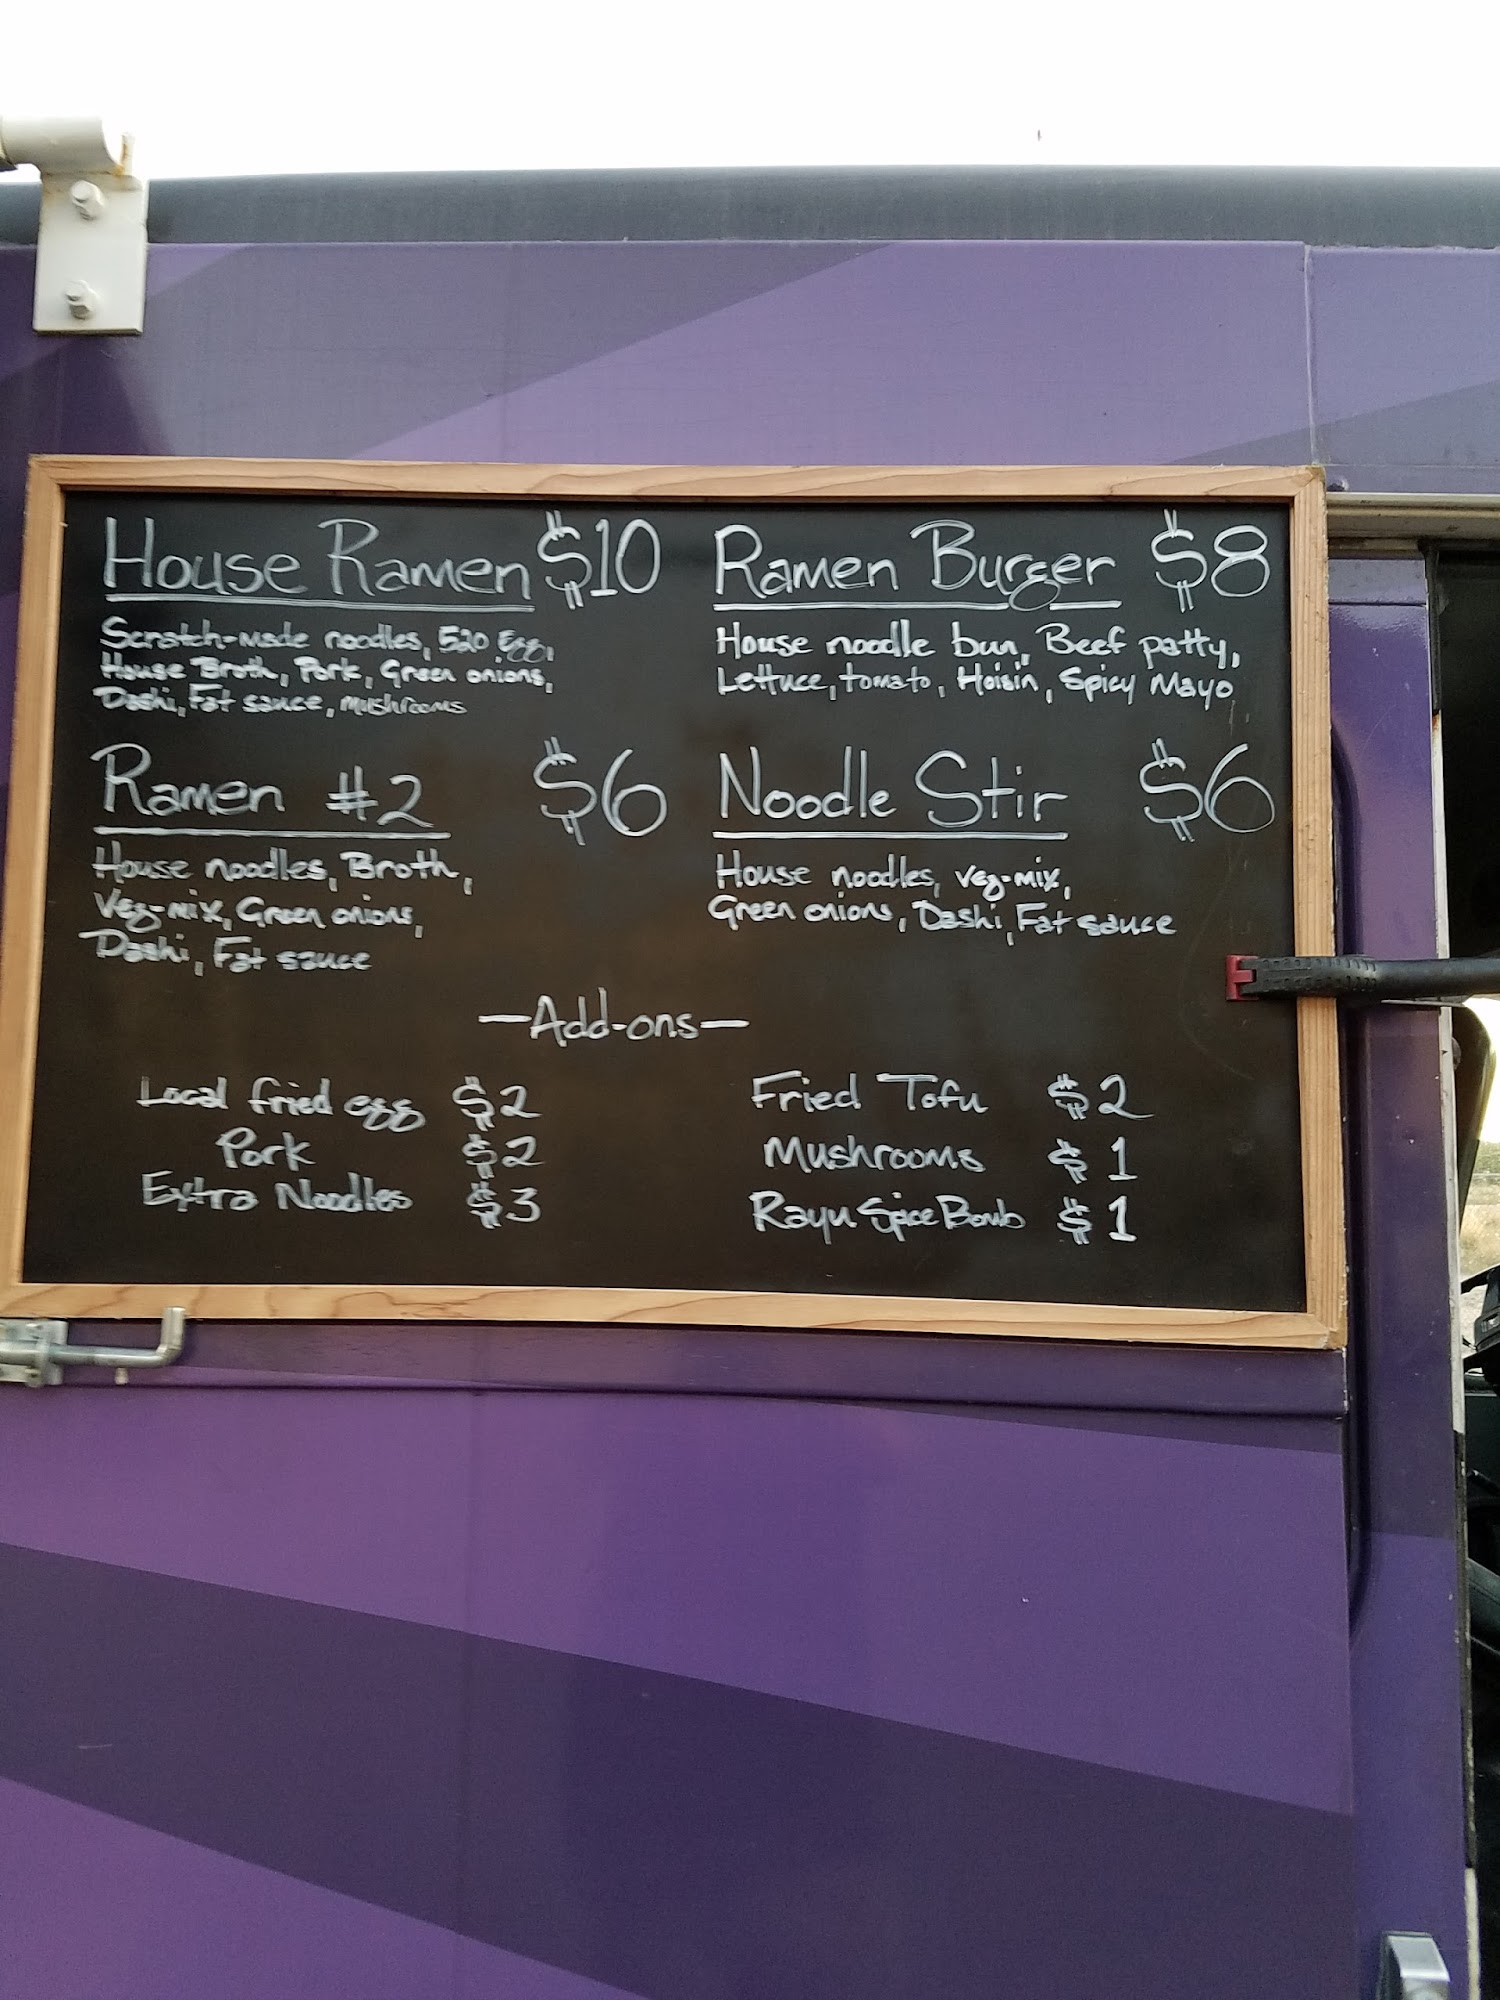 House Ramen $10
Scratch-made noodles, 520 Egg,
House Broth, Pork, Green onions,
Dashi, Fat sauce, mushrooms
Ramen Burger $8
House noodle bun, Beef patty,
Lettuce, tomato, Hoisin, Spicy Mayo
Ramen #2 $6
House noodles, Broth,
Veg-mix, Green onions,
Dashi, Fat sauce
Noodle Stir $6
House noodles, veg-mix,
Green onions, Dashi, Fat sauce
—Add-ons—
Local fried egg $2
Pork $2
Extra Noodles $3
Fried Tofu $2
Mushrooms $1
Rayu Spice Bomb $1